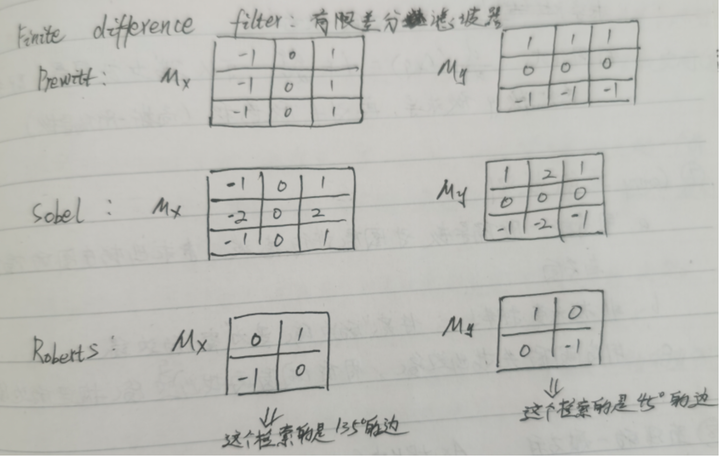 Finite difference filter: 有限差分滤波器
Prewitt: Mx
-1 0 1
-1 0 1
-1 0 1
My
1 1 1
0 0 0
-1 -1 -1
Sobel: Mx
-1 0 1
-2 0 2
-1 0 1
My
1 2 1
0 0 0
-1 -2 -1
Roberts: Mx
0 1
-1 0
这个检索的是135°的边
My
1 0
0 -1
这个检索的是45°的边